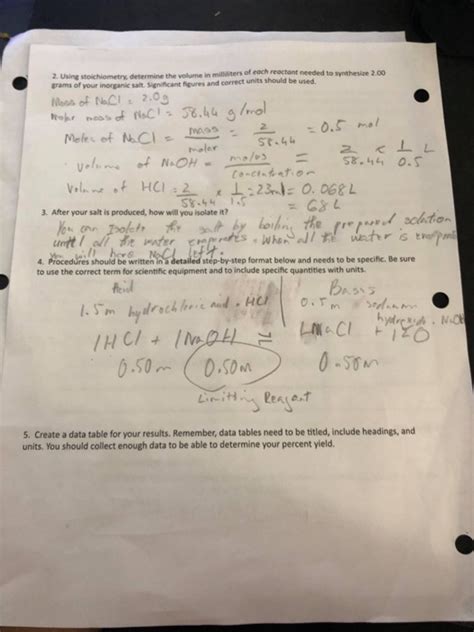 2. Using stoichiometry, determine the volume in milliliters of each reactant needed to synthesize 2.00
grams of your inorganic salt. Significant figures and correct units should be used.
Mass of NaCl = 2.0g
Molar mass of NaCl = 58.44 g/mol
Moles of NaCl = mass / molar = 2 / 58.44 = 0.5 mol
volume of NaOH = moles / concentration = 2 / 58.44 × 1 / 0.5 L
Volume of HCl = 2 / 58.44 × 1 / 1.5 = 23ml = 0.068L
= 68L
3. After your salt is produced, how will you isolate it?
You can Isolate the salt by boiling the prepared solution
until all the water evaporates. When all the water is
you will have NaCl left.
4. Procedures should be written in a detailed step-by-step format below and needs to be specific. Be sure
to use the correct term for scientific equipment and to include specific quantities with units.
Acid Basis
1.5m hydrochloric acid = HCl 0.5m hydroxide NaOH
1HCl + 1NaOH NaCl +
0.50m 0.50m 0.50m
Limitting Reagent
5. Create a data table for your results. Remember, data tables need to be titled, include headings, and
units. You should collect enough data to be able to determine your percent yield.